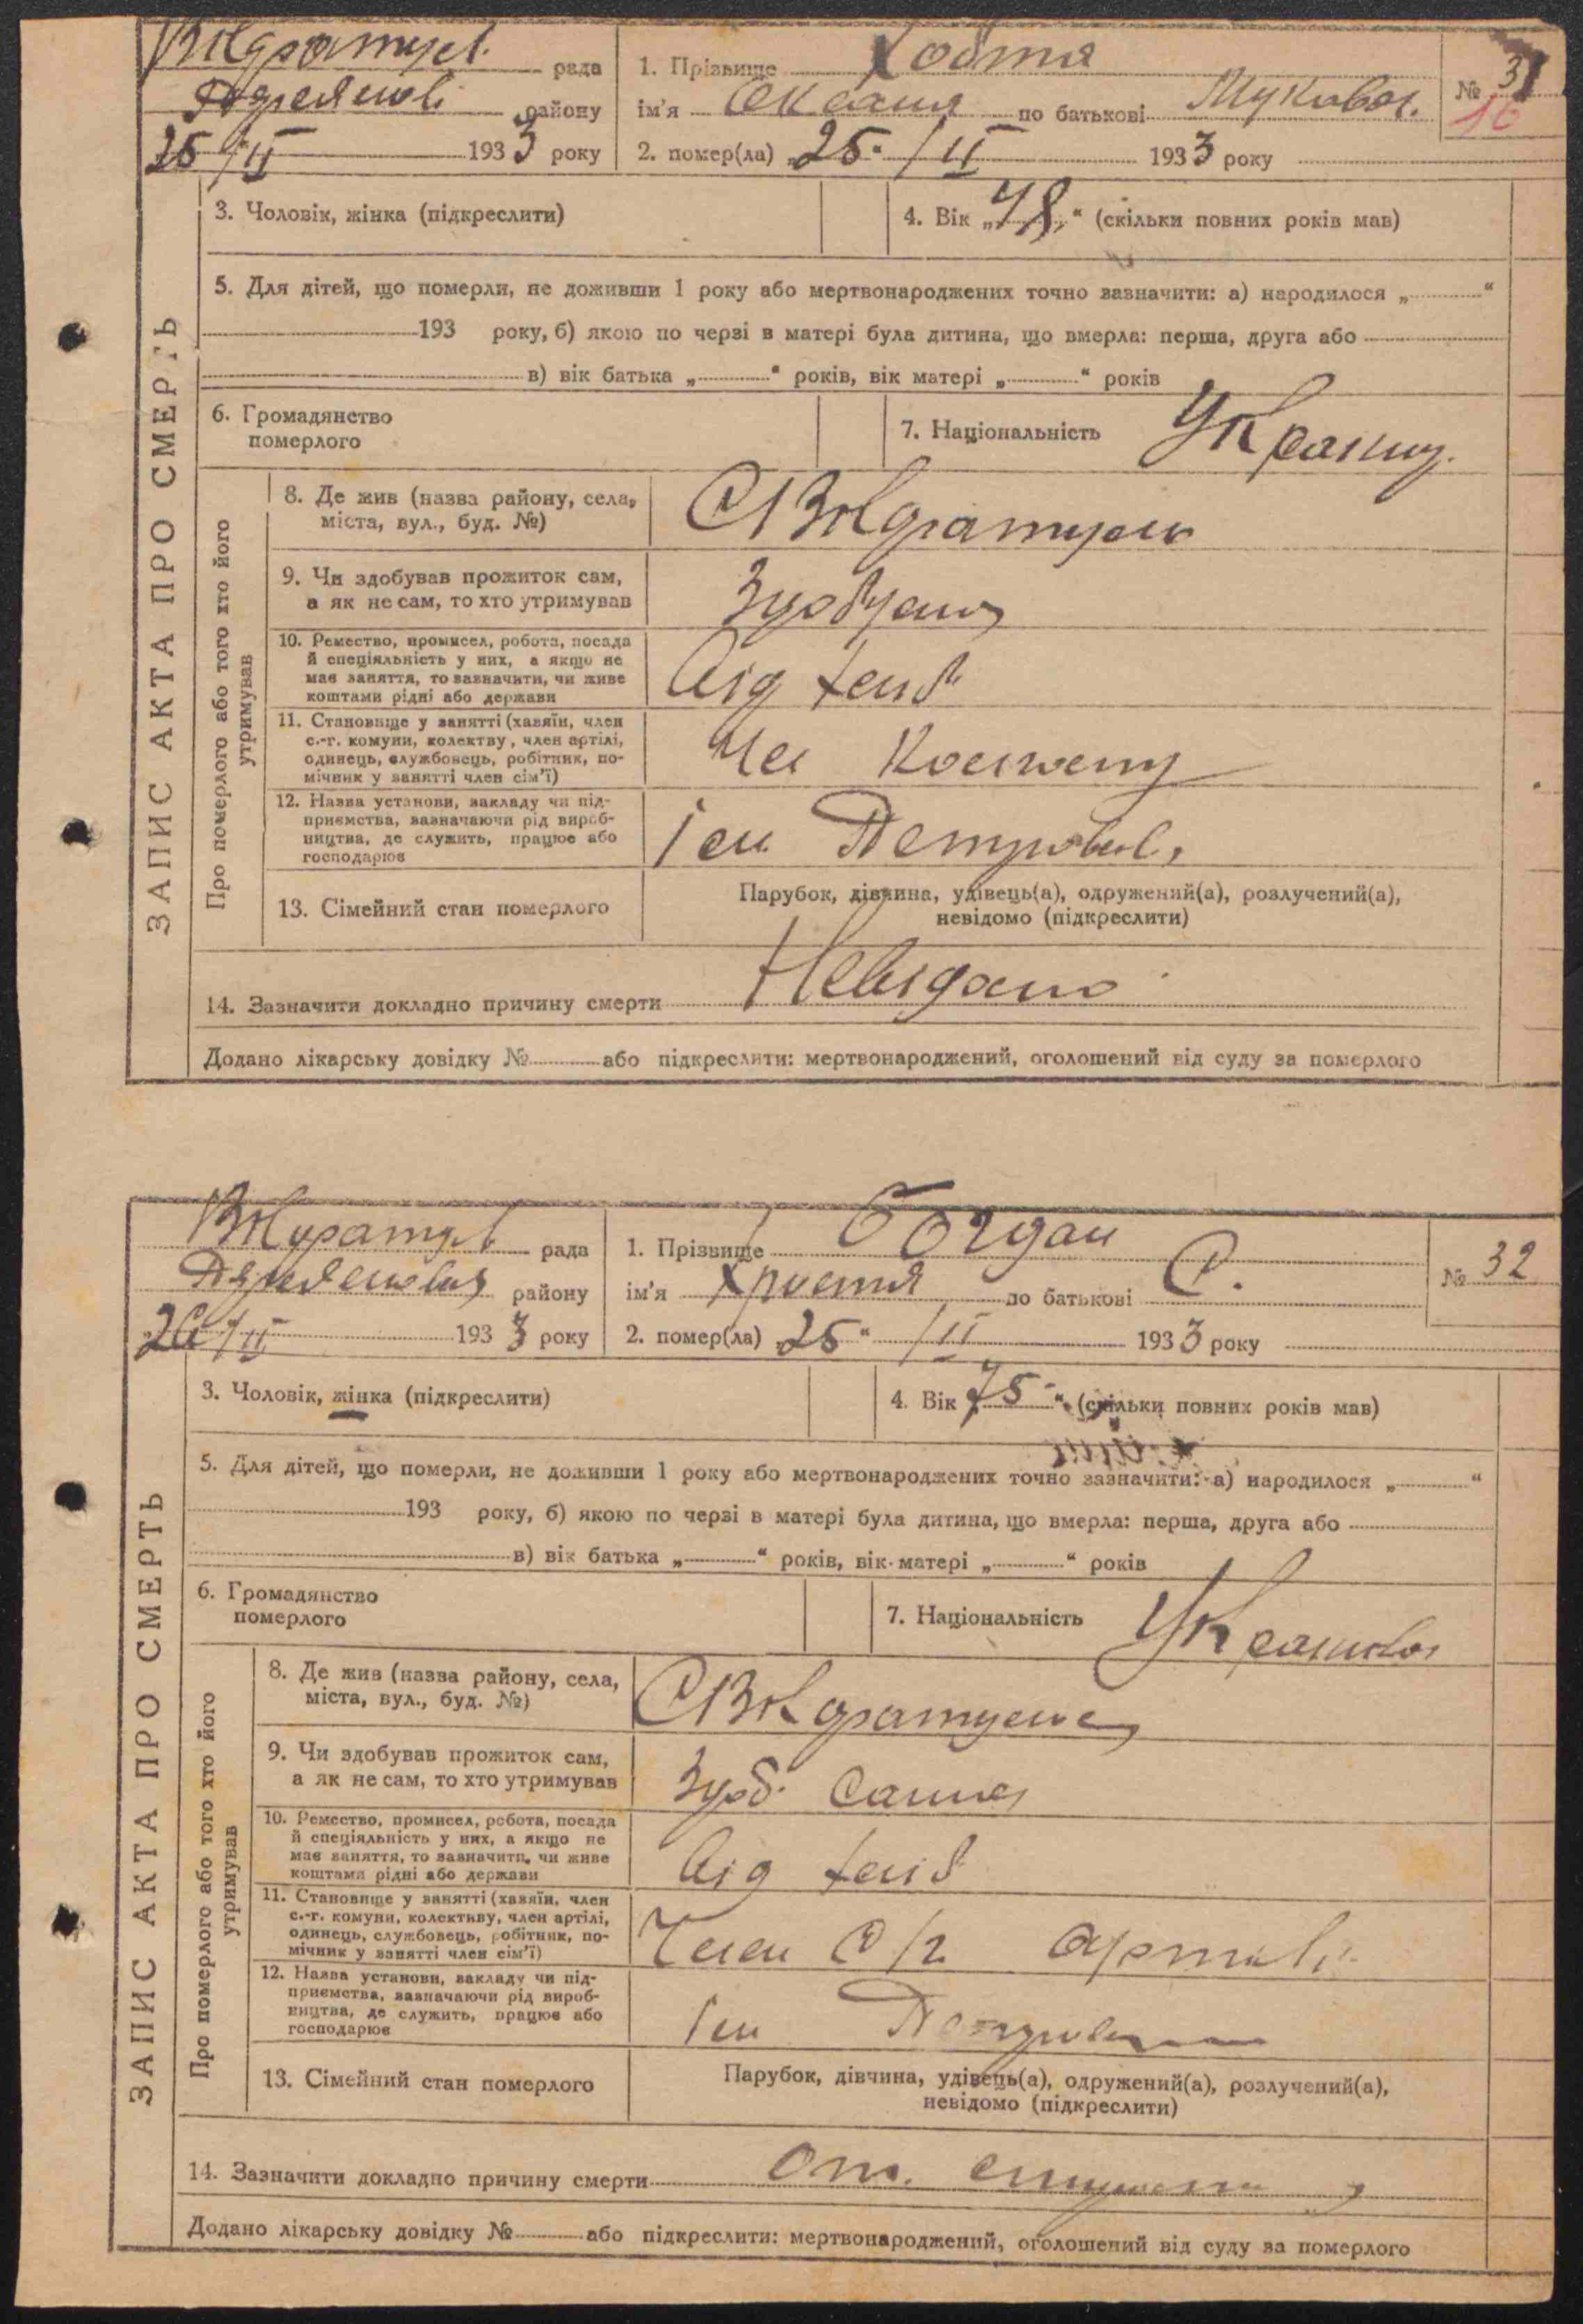 рада
району
25/II 1933 року
1. Прізвище Хобтя
ім'я по батькові
2. помер(ла) „25“ /II 1933 року
№ 31
16
3. Чоловік, жінка (підкреслити)
4. Вік „78“ (скільки повних років мав)
5. Для дітей, що померли, не доживши 1 року або мертвонароджених точно зазначити: а) народилося „ “
193 року, б) якою по черзі в матері була дитина, що вмерла: перша, друга або
в) вік батька „ “ років, вік матері „ “ років
6. Громадянство
померлого
7. Національність Украин.
ЗАПИС АКТА ПРО СМЕРТЬ
Про померлого або того хто його
утримував
8. Де жив (назва району, села,
міста, вул., буд. №)
9. Чи здобував прожиток сам,
а як не сам, то хто утримував
10. Ремество, промисел, робота, посада
й спеціяльність у них, а якщо не
має заняття, то зазначити, чи живе
коштами рідні або держави
11. Становище у занятті (хазяїн, член
с.-г. комуни, колективу, член артілі,
одинець, службовець, робітник, по-
мічник у занятті член сім'ї)
12. Назва установи, закладу чи під-
приємства, зазначаючи рід вироб-
ництва, де служить, працює або
господарює
Ім Петровсь.
13. Сімейний стан померлого
Парубок, дівчина, удівець(а), одружений(а), розлучений(а),
невідомо (підкреслити)
14. Зазначити докладно причину смерти Невідомо
Додано лікарську довідку № або підкреслити: мертвонароджений, оголошений від суду за померлого
рада
району
26/II 1933 року
1. Прізвище Богдан
ім'я Христя по батькові С.
2. помер(ла) „25“ /II 1933 року
№ 32
3. Чоловік, жінка (підкреслити)
4. Вік „75“ (скільки повних років мав)
5. Для дітей, що померли, не доживши 1 року або мертвонароджених точно зазначити: а) народилося „ “
193 року, б) якою по черзі в матері була дитина, що вмерла: перша, друга або
в) вік батька „ “ років, вік матері „ “ років
6. Громадянство
померлого
7. Національність
ЗАПИС АКТА ПРО СМЕРТЬ
Про померлого або того хто його
утримував
8. Де жив (назва району, села,
міста, вул., буд. №)
9. Чи здобував прожиток сам,
а як не сам, то хто утримував
Здоб. Сама
10. Ремество, промисел, робота, посада
й спеціяльність у них, а якщо не
має заняття, то зазначити, чи живе
коштами рідні або держави
11. Становище у занятті (хазяїн, член
с.-г. комуни, колективу, член артілі,
одинець, службовець, робітник, по-
мічник у занятті член сім'ї)
Член С/г Артілі
12. Назва установи, закладу чи під-
приємства, зазначаючи рід вироб-
ництва, де служить, працює або
господарює
Ім
13. Сімейний стан померлого
Парубок, дівчина, удівець(а), одружений(а), розлучений(а),
невідомо (підкреслити)
14. Зазначити докладно причину смерти От.
Додано лікарську довідку № або підкреслити: мертвонароджений, оголошений від суду за померлого